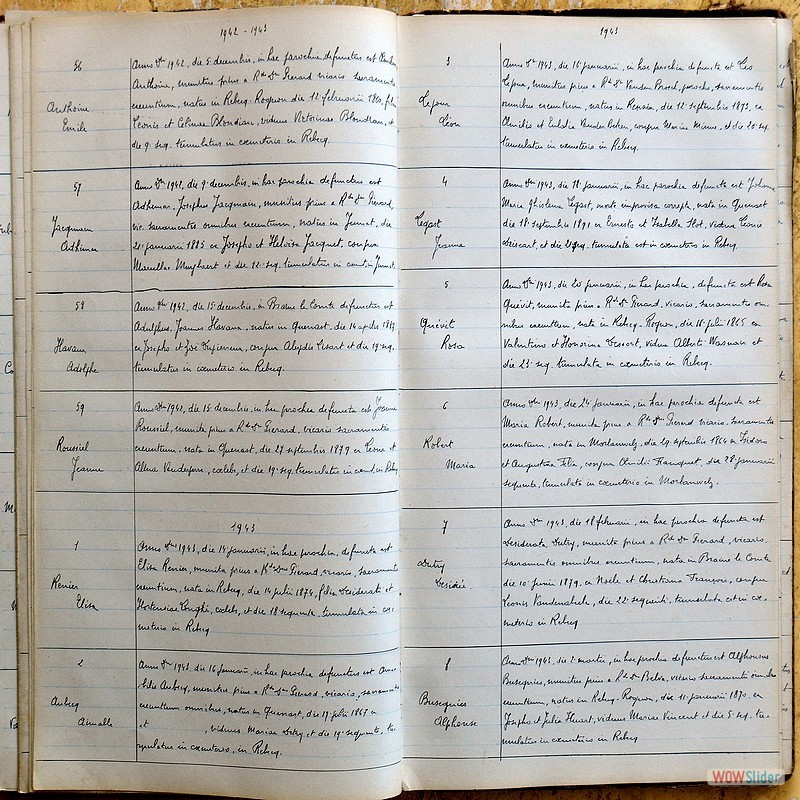 1942 - 1943
56
Anthoine
Emile
Anno Dni 1942, die 5 decembris, in hac parochia defunctus est
Anthoine, munitus prius a Rdo Do Pierard vicario sacramentis
exeuntium, natus in Rebecq-Rognon die 12 februarii
Leonis et Celinae Blondiau, viduus Victorinae Blondiau, et
die 9 seq. tumulatus in coemeterio in Rebecq.
57
Jacqmain
Adhémar
Anno Dni 1942, die 9 decembris, in hac parochia defunctus est
Adhemar Josephus Jacqmain, munitus prius a Rdo Do Pierard,
vic. sacramentis omnibus exeuntium, natus in Jumet, die
januarii 1885 ex Josepho et Heloisa Jacquet, conjux
Marcellae et die 12 seq. tumulatus in coemet. in Jumet.
58
Havaux
Adolphe
Anno Dni 1942, die 15 decembris, in Braine le Comte defunctus est
Adolphus, Joannes Havaux, natus in Quenast, die 14 aprilis
ex Josepho et Zoé conjux Aleydis et die 19 seq.
tumulatus in coemeterio in Rebecq.
59
Roussiel
Jeanne
Anno Dni 1942, die 15 decembris, in hac parochia defuncta est Joanna
Roussiel, munita prius a Rdo Do Pierard, vicario sacramentis
exeuntium, nata in Quenast, die 29 septembris 1879 ex Leone et
coelebs, et die 19 seq. tumulata in coemet. in Rebecq
1943
1
Renier
Elisa
Anno Dni 1943, die 14 januarii, in hac parochia defuncta est
Elisa Renier, munita prius a Rdo Dno Pierard, vicario, sacramentis
exeuntium, nata in Rebecq, die 14 julii 1874, filia Desiderati et
Hortensiae coelebs, et die 18 sequente, tumulata in coe-
meterio in Rebecq
2
Aubecq
Aimable
Anno Dni 1943, die 16 januarii, in hac parochia defunctus est Ama-
bilis Aubecq, munitus prius a Rdo Dno Pierard, vicario, sacramentis
exeuntium omnibus, natus in Quenast, die 19 julii 1867 ex
et , viduus Mariae Detry, et die 19 sequente, tu-
mulatus in coemeterio, in Rebecq.
1943
3
Lepour
Léon
Anno Dni 1943, die 16 januarii, in hac parochia defunctus est Leo
Lepour, munitus prius a Rdo Do Vanden parocho, sacramentis
omnibus exeuntium, natus in die 12 septembris 1893, ex
et Eulalia Vander conjux Mariae et die 20 seq.
tumulatus in coemeterio in Rebecq.
4
Legast
Jeanne
Anno Dni 1943, die 18 januarii, in hac parochia defuncta est Johanna
Maria Ghislena Legast, morte improvisa correpta, nata in Quenast
die 18 septembris 1891 ex Ernesto et Isabella Stot, vidua
et die seq. tumulata est in coemeterio in Rebecq.
5
Quévit
Rosa
Anno Dni 1943, die 20 januarii, in hac parochia, defuncta est Rosa
Quévit, munita prius a Rdo Do Pierard, vicario, sacramentis om-
nibus exeuntium, nata in Rebecq-Rognon, die 16 julii 1865 ex
Valentino et Honorina vidua Alberti Wasnair et
die 23 seq. tumulata in coemeterio in Rebecq.
6
Robert
Maria
Anno Dni 1943, die 24 januarii, in hac parochia defuncta est
Maria Robert, munita prius a Rdo Do Pierard vicario, sacramentis
exeuntium, nata in Morlanwelz, die 29 septembris 1864 ex Isidoro
et Augustina conjux die 28 januarii
sequente, tumulata in coemeterio in Morlanwelz.
7
Detry
Desirée
Anno Dni 1943, die 18 februarii, in hac parochia defuncta est
Desiderata Detry, munita prius a Rdo Do Pierard, vicario,
sacramentis omnibus exeuntium, nata in Braine le Comte
die 10 junii 1879, ex Noële et Christiana François, conjux
Leonis Vandenabeele, die 22 sequenti, tumulata est in coe-
meterio in Rebecq
8
Busegnies
Alphonse
Anno Dni 1943, die 2 martii, in hac parochia defunctus est Alphonsus
Busegnies, munitus prius a Rdo Do vicario sacramentis omnibus
exeuntium, natus in Rebecq-Rognon, die 11 januarii 1870, ex
Josepho et Julia Huart, viduus Mariae Vincent et die 5 seq. tu-
mulatus in coemeterio in Rebecq
WOWSlider